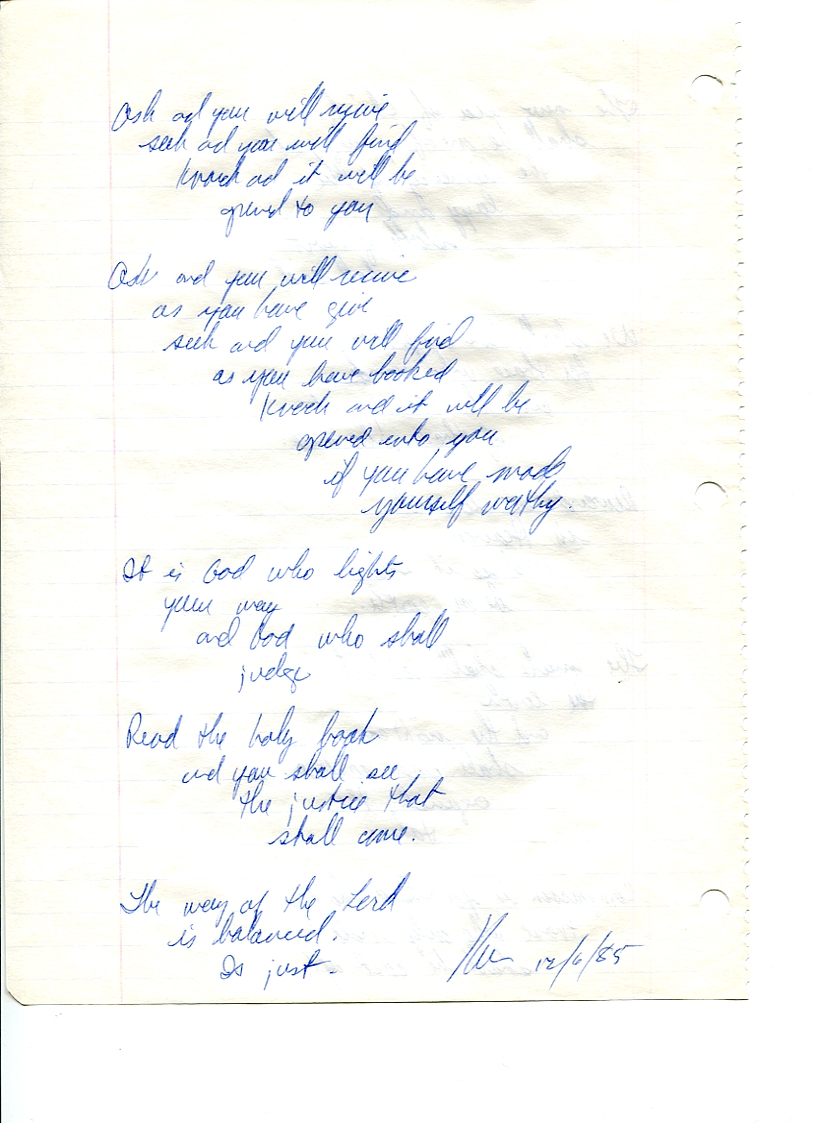 Ask ad you will receive
seek ad you will find
Knock ad it will be
opened to you
Ask and you will receive
as you have give
seek and you will find
as you have looked
Knock and it will be
opened unto you
if you have made
yourself worthy.
It is God who lights
your way
and God who shall
judge
Read the holy book
and you shall see
the justice that
shall come.
The way of the Lord
is balanced.
Is just.
12/6/85